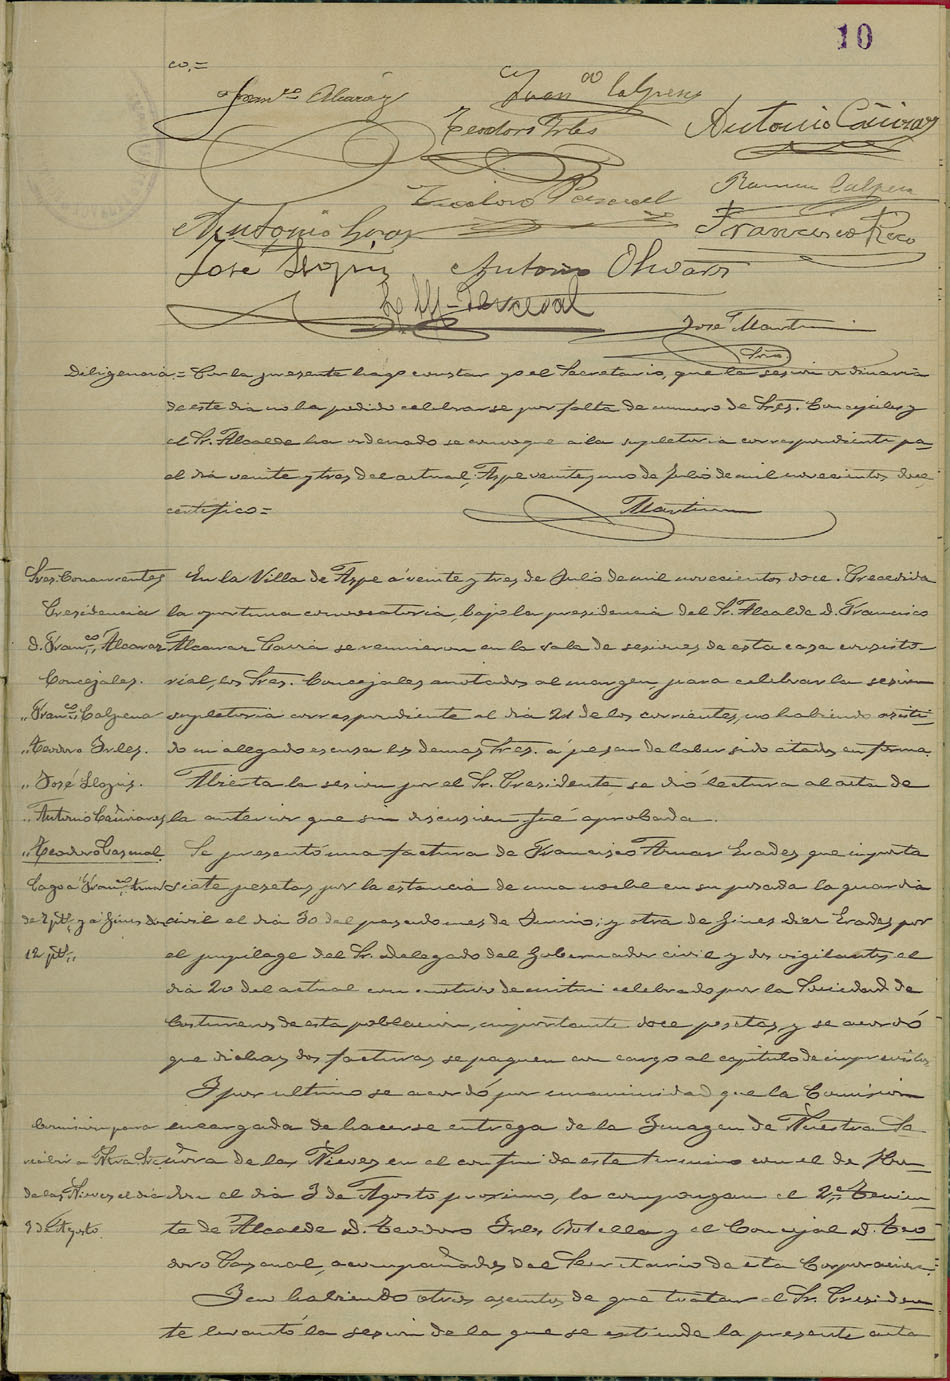 10
co,=
Franco Alcaráz
Juan Calpena
Teodoro Irles
Antonio Cañizares
Teodoro Pascual
Ramon Calpena
Antonio
Francisco Rico
José Llopis
Antonio Olivares
José Martin
Srio
Diligencia.= Por la presente hago constar yo el Secretario, que la sesion ordinaria
de este dia no ha podido celebrarse por falta de numero de Sres. Concejales y
el Sr. Alcalde ha ordenado se convoque a la supletoria correspondiente pa-
el dia veinte y tres del actual, Aspe veinte y uno de Julio de mil novecientos doce
certifico=
Martin
Sres. Concurrentes
Presidencia
D. Franco Alcaraz
Concejales.
" Franco Calpena
" Teodoro Irles.
" José Llopis.
" Antonio Cañizares
" Teodoro Pascual
Pago a Franco Arnar
de 7 pts y a Gines Diez
12 pts,,
En la Villa de Aspe á veinte y tres de Julio de mil novecientos doce. Precedida
la oportuna convocatoria, bajo la presidencia del Sr. Alcalde D. Francisco
Alcaraz se reunieron en la sala de sesiones de esta casa consisto-
rial, los Sres. Concejales anotados al margen, para celebrar la sesion
supletoria correspondiente al dia 21 de los corrientes, no habiendo asisti-
do ni alegado escusa los demas Sres. á pesar de haber sido citados en forma.
Abierta la sesion por el Sr. Presidente, se dió lectura al acta de
la anterior que sin discusion fué aprobada.
Se presentó una factura de Francisco Arnar Erades que importa
siete pesetas por la estancia de una noche en su posada la guardia
civil el dia 30 del pasado mes de Junio; y otra de Gines Diez Erades por
el pupilage del Sr. Delegado del Gobernador civil y dos vigilantes el
dia 20 del actual con motivo de mitin celebrado por la Sociedad de
Costureros de esta poblacion, importante doce pesetas, y se acordó
que dichas dos facturas se paguen con cargo al capitulo de imprevistos
Comision para
recibir a Ntra. Sra
de las Nieves el dia
3 de Agosto.
I por ultimo se acordó por unanimidad que la Comision
encargada de hacerse entrega de la Imagen de Nuestra Se-
ñora de las Nieves en el confin de este termino con el de Hon-
don el dia 3 de Agosto proximo, la compongan el 2º Tenien-
te de Alcalde D. Teodoro Irles Botella y el Concejal D. Teo-
doro Pascual, acompañados del Secretario de esta Corporacion.
I no habiendo otros asuntos de que tratar el Sr. Presiden-
te levantó la sesion de la que se extiende la presente acta